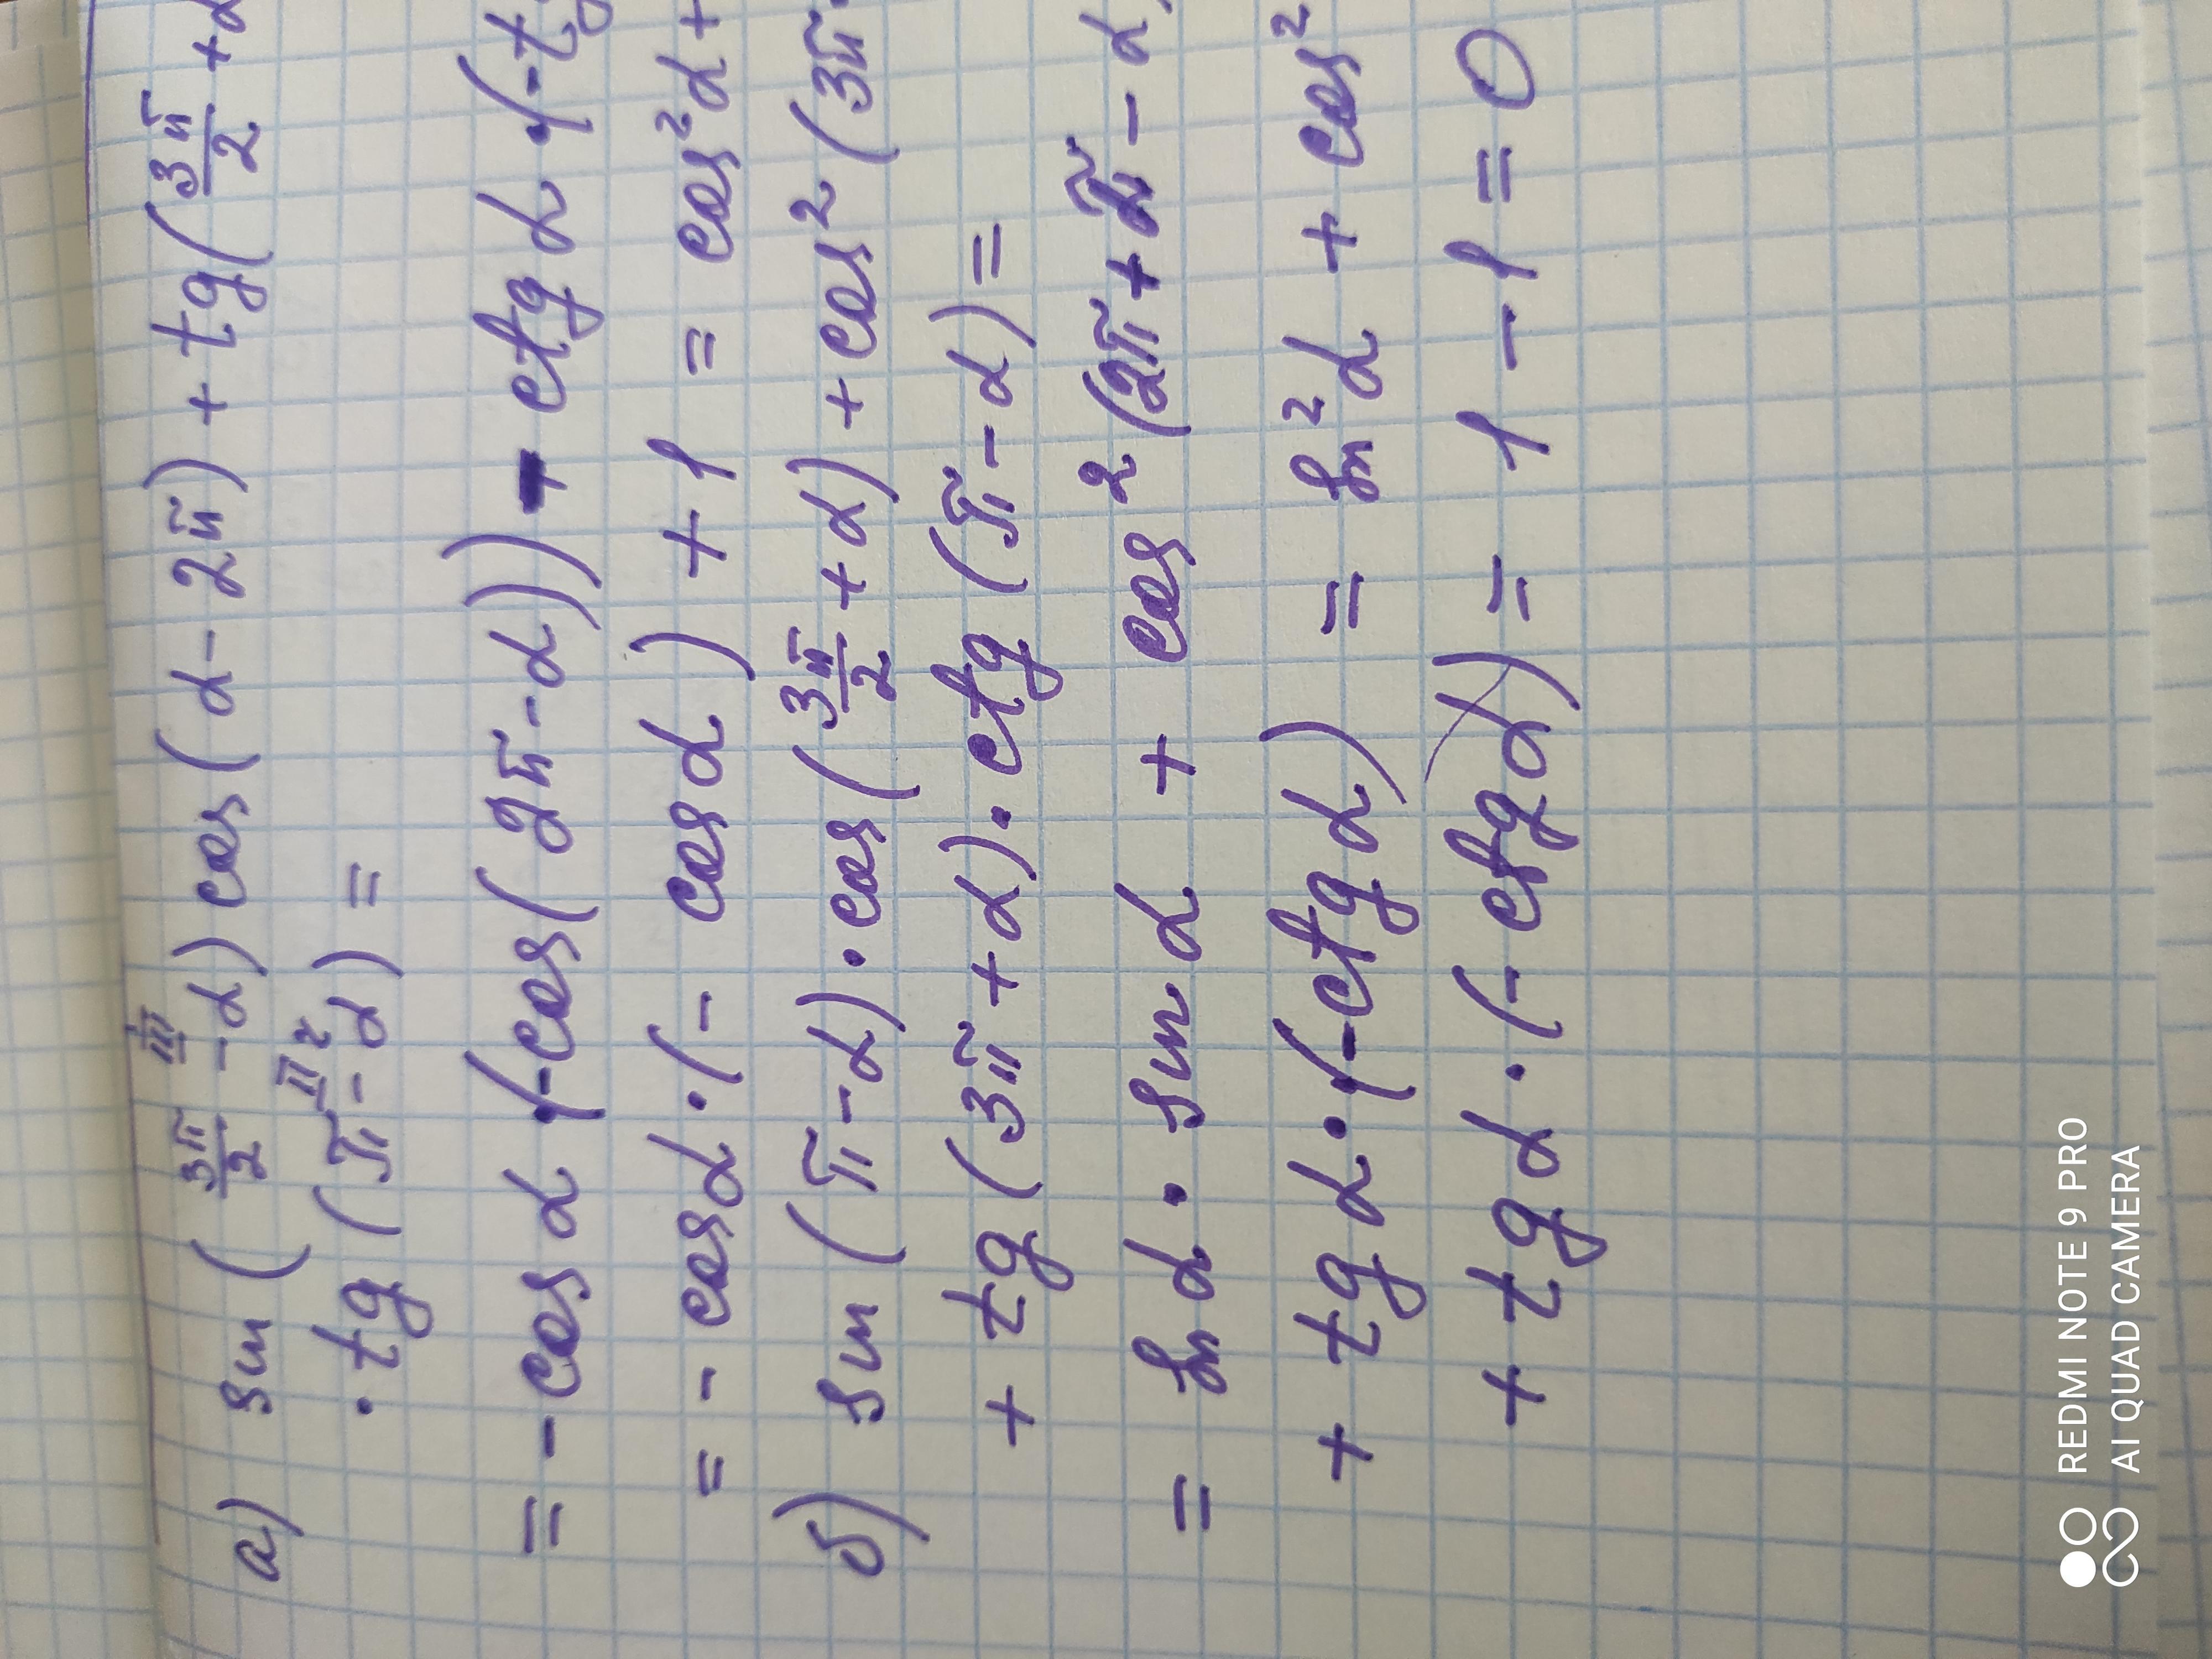 а) sin(3π/2 - α) cos(α - 2π) + tg(3π/2 + α
III
· tg(π - α) =
II
= - cos α · (-cos(2π - α)) - ctg α · (-tg
= - cos α · (- cos α) + 1 = cos²α +
б) sin(π - α) · cos(3π/2 + α) + cos²(3π
+ tg(3π + α) · ctg(π - α) =
= sin α · sin α + cos²(2π + π - α)
+ tg α · (-ctg α) = sin²α + cos²
+ tg α · (- ctg α) = 1 - 1 = 0
REDMI NOTE 9 PRO
AI QUAD CAMERA